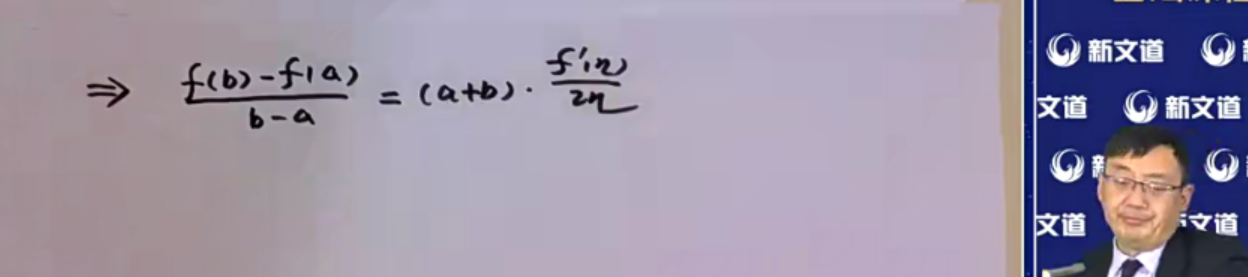 ⇒ f(b)-f(a)/b-a = (a+b)·f'(η)/2η
新文道
文道 新文道
新
文道 文道